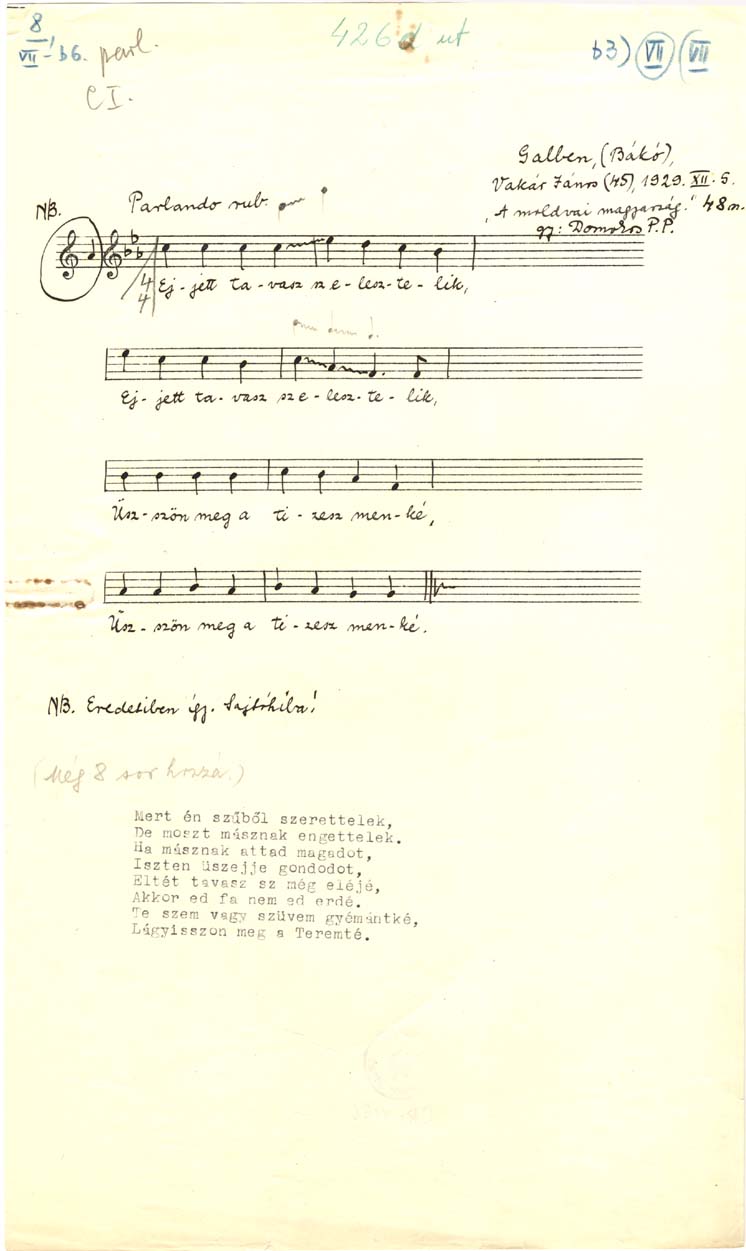 8
VII - b6. parl.
C I.
426 d ut
b3) VII (VII
Galben, (Bákó),
Vakár János (45), 1929. XII. 5.
"A moldvai magyarság." 48 m.
gy: Domokos P.P.
NB.
Parlando rub.
4
4
Ej - jett ta - vasz sz e - lesz - te - lik,
Ej - jett ta - vasz sz e - lesz - te - lik,
Üsz - szön meg a ti - zesz men - ké,
Üsz - szön meg a ti - zesz men - ké.
NB. Eredetiben így. Sajtóhiba!
(Még 8 sor hozzá.)
Mert én szűből szerettelek,
De moszt másznak engettelek.
Ha másznak attad magadot,
Iszten üszejje gondodot,
Eltét tavasz sz még eléjé,
Akkor ed fa nem ed erdé.
Te szem vagy szüvem gyémántké,
Lágyisszon meg a Teremté.